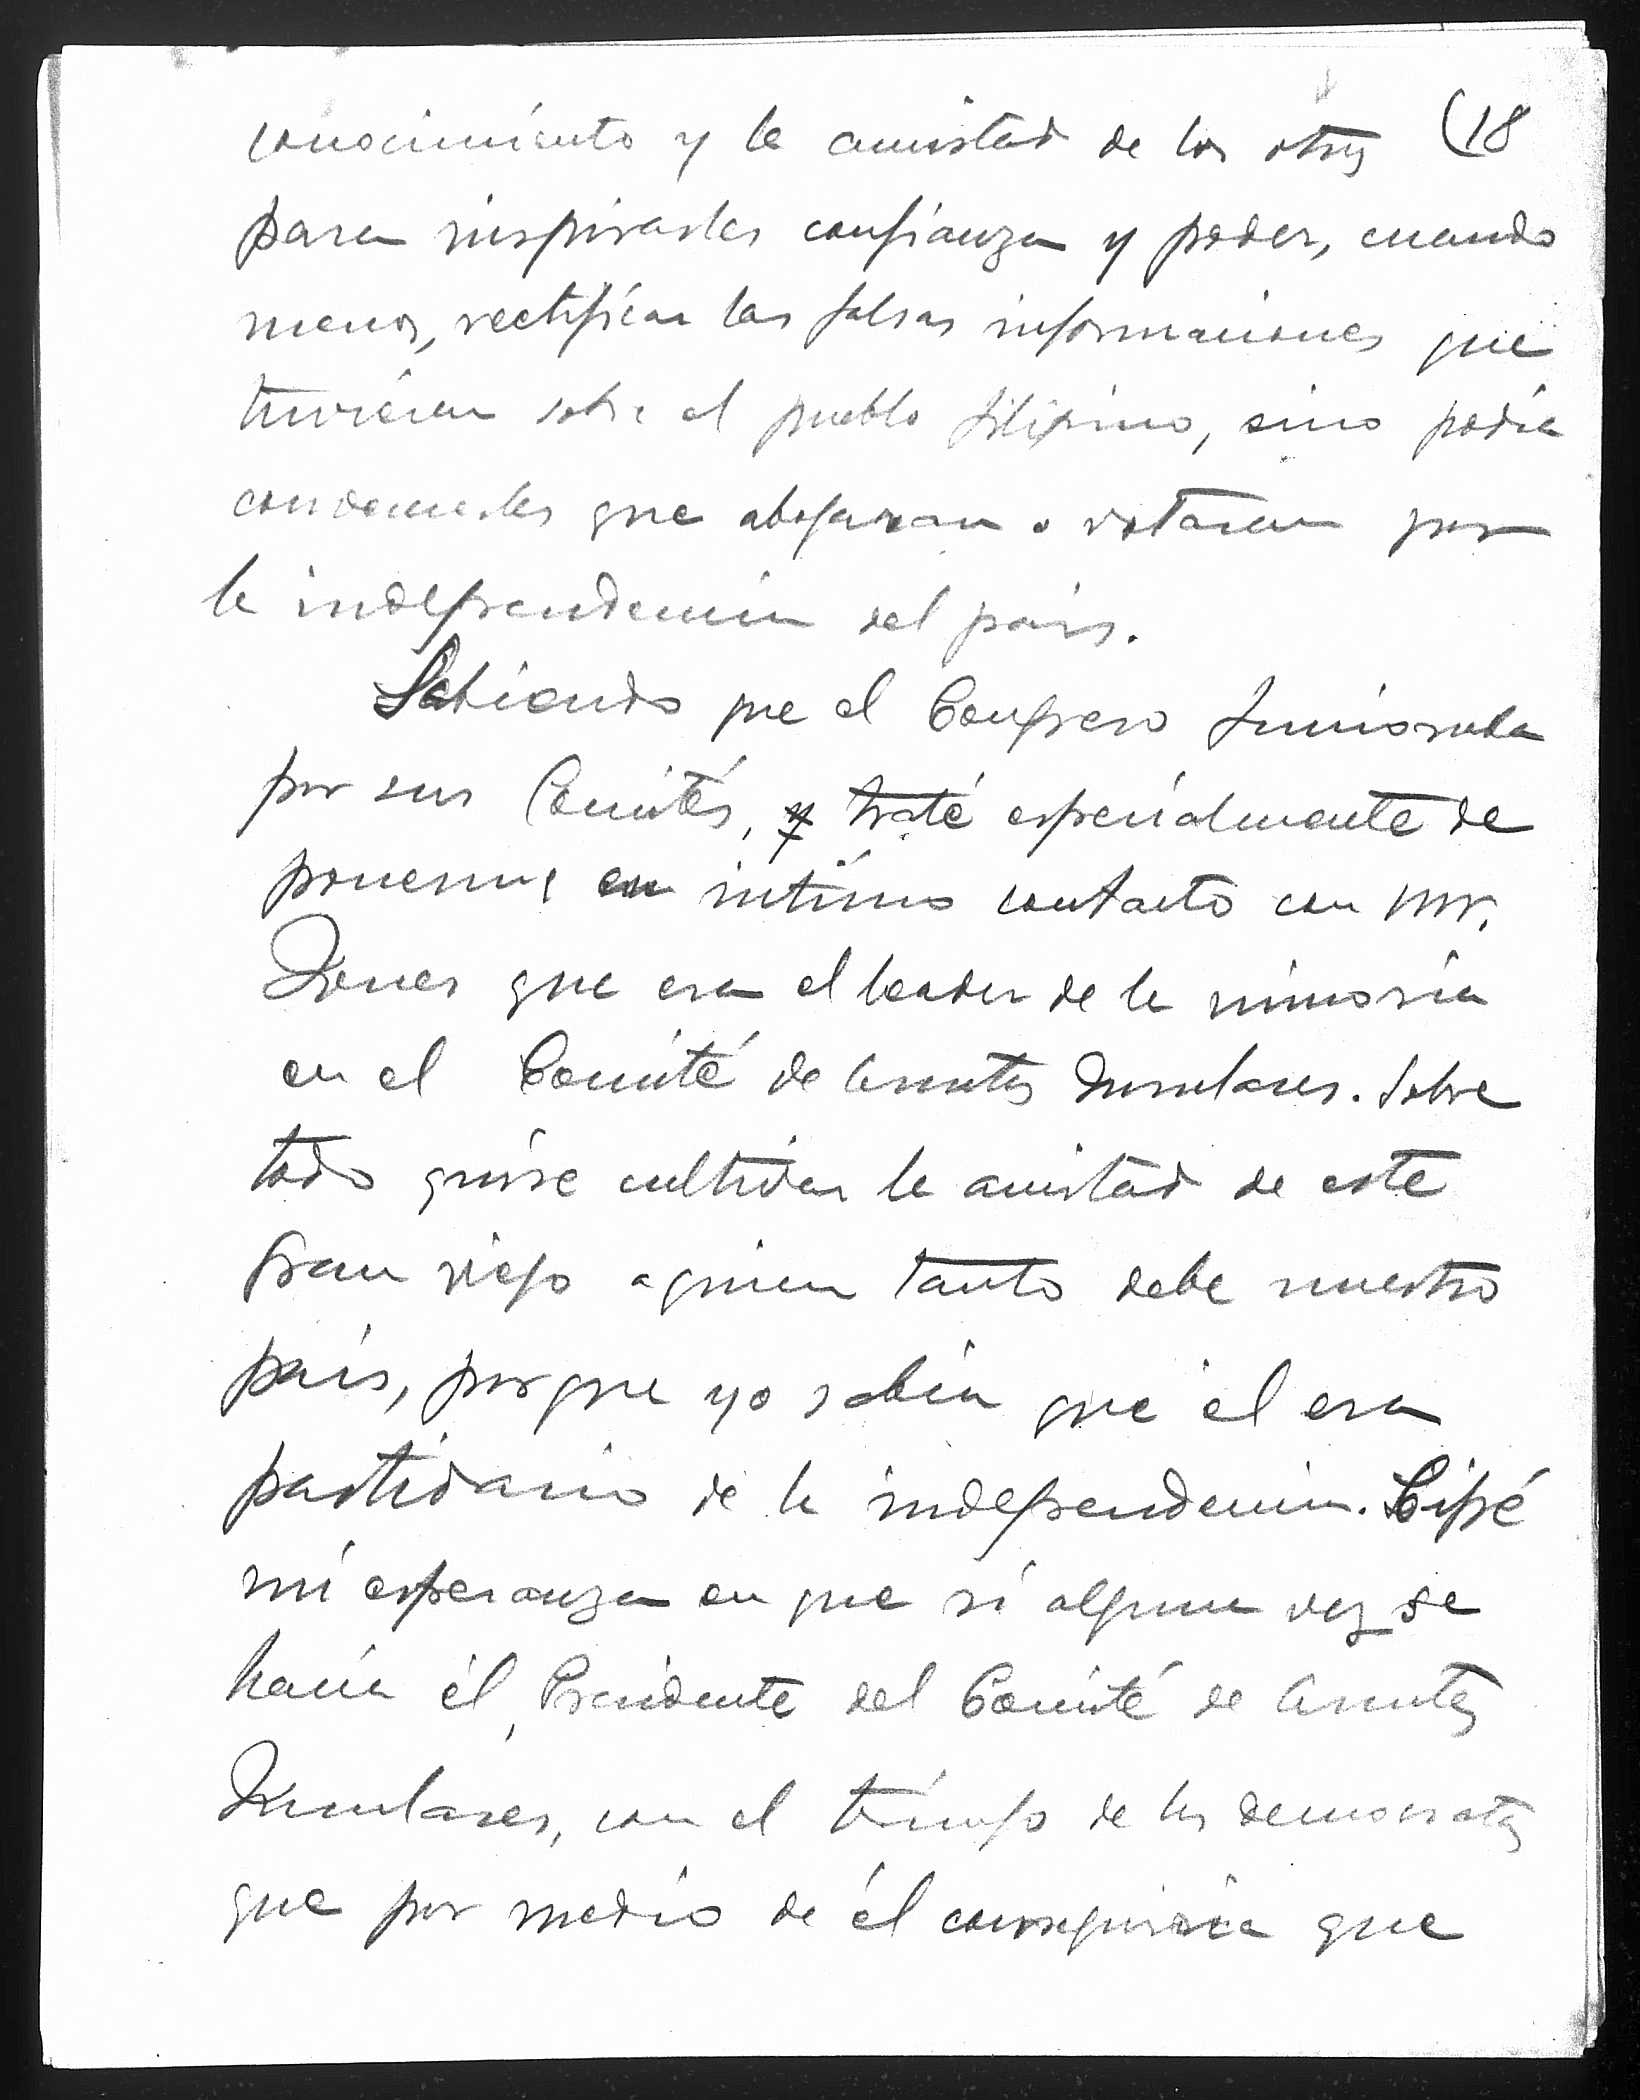 conocimiento y la amistad de los otros (18
para inspirarles confianza y poder, cuando
menos, rectificar las falsas informaciones que
tuvieran sobre el pueblo filipino, sino podía
convencerles que abogaran o votaran por
la independencia del país.
Sabiendo que el Congreso funcionaba
por sus Comités, y traté especialmente de
ponerme en íntimo contacto con Mr.
Jones que era el leader de la minoría
en el Comité de Asuntos Insulares. Sobre
todo quise cultivar la amistad de este
gran viejo a quien tanto debe nuestro
país, porque yo sabía que él era
partidario de la independencia. Cifré
mi esperanza en que si alguna vez se
hacía él, Presidente del Comité de Asuntos
Insulares, con el triunfo de los democratas
que por medio de él conseguiría que